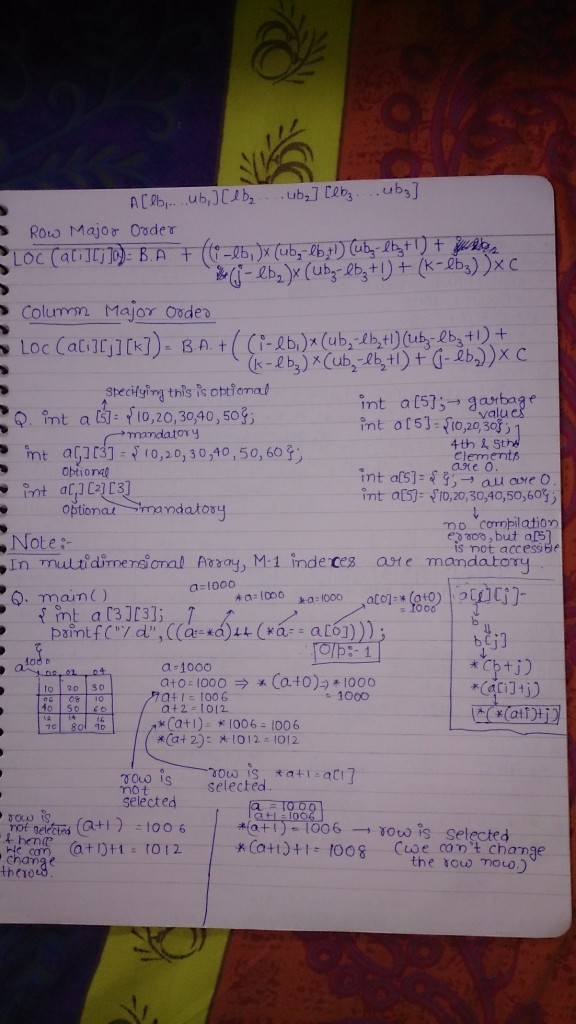 A[lb₁....ub₁][lb₂ .... ub₂][lb₃....ub₃]
Row Major Order
LOC (a[i][j]) = B.A + ((i-lb₁)×(ub₂-lb₂+1)(ub₃-lb₃+1) +
(j-lb₂)×(ub₃-lb₃+1) + (k-lb₃))×C
Column Major Order
LOC (a[i][j][k]) = B.A. + ((i-lb₁)×(ub₂-lb₂+1)(ub₃-lb₃+1) +
(k-lb₃)×(ub₂-lb₂+1) + (j-lb₂))×C
specifying this is optional
Q. int a[5] = {10,20,30,40,50};
→mandatory
int a[][3] = {10,20,30,40,50,60};
optional
int a[][2][3]
optional mandatory
int a[5]; → garbage
values
int a[5] = {10,20,30};
4th & 5th
elements
are 0.
int a[5] = { }; → all are 0.
int a[5] = {10,20,30,40,50,60};
no compilation
error, but a[5]
is not accessible
Note:-
In multidimensional Array, M-1 indexes are mandatory.
a=1000
Q. main() *a=1000 *a=1000 a[0]=*(a+0)
=1000
{ int a[3][3];
printf("%d",((a==*a)&&(*a==a[0])));
O/p:- 1
a[i][j]-
b
b[j]
*(b+j)
*(a[i]+j)
*(*(a+i)+j)
a 1000
00 02 04
10 20 30
06 08 10
40 50 60
12 14 16
70 80 90
a=1000
a+0=1000 ⇒ *(a+0) ⇒ *1000
= 1000
a+1=1006
a+2=1012
*(a+1)= *1006 = 1006
*(a+2)= *1012 = 1012
row is
not
selected
row is *a+1=a[1]
selected.
row is
not selected
& hence
we can
change
the row.
(a+1) = 1006
(a+1)+1 = 1012
a = 1000
a+1=1006
*(a+1) = 1006 → row is selected
*(a+1)+1 = 1008 (we can't change
the row now.)